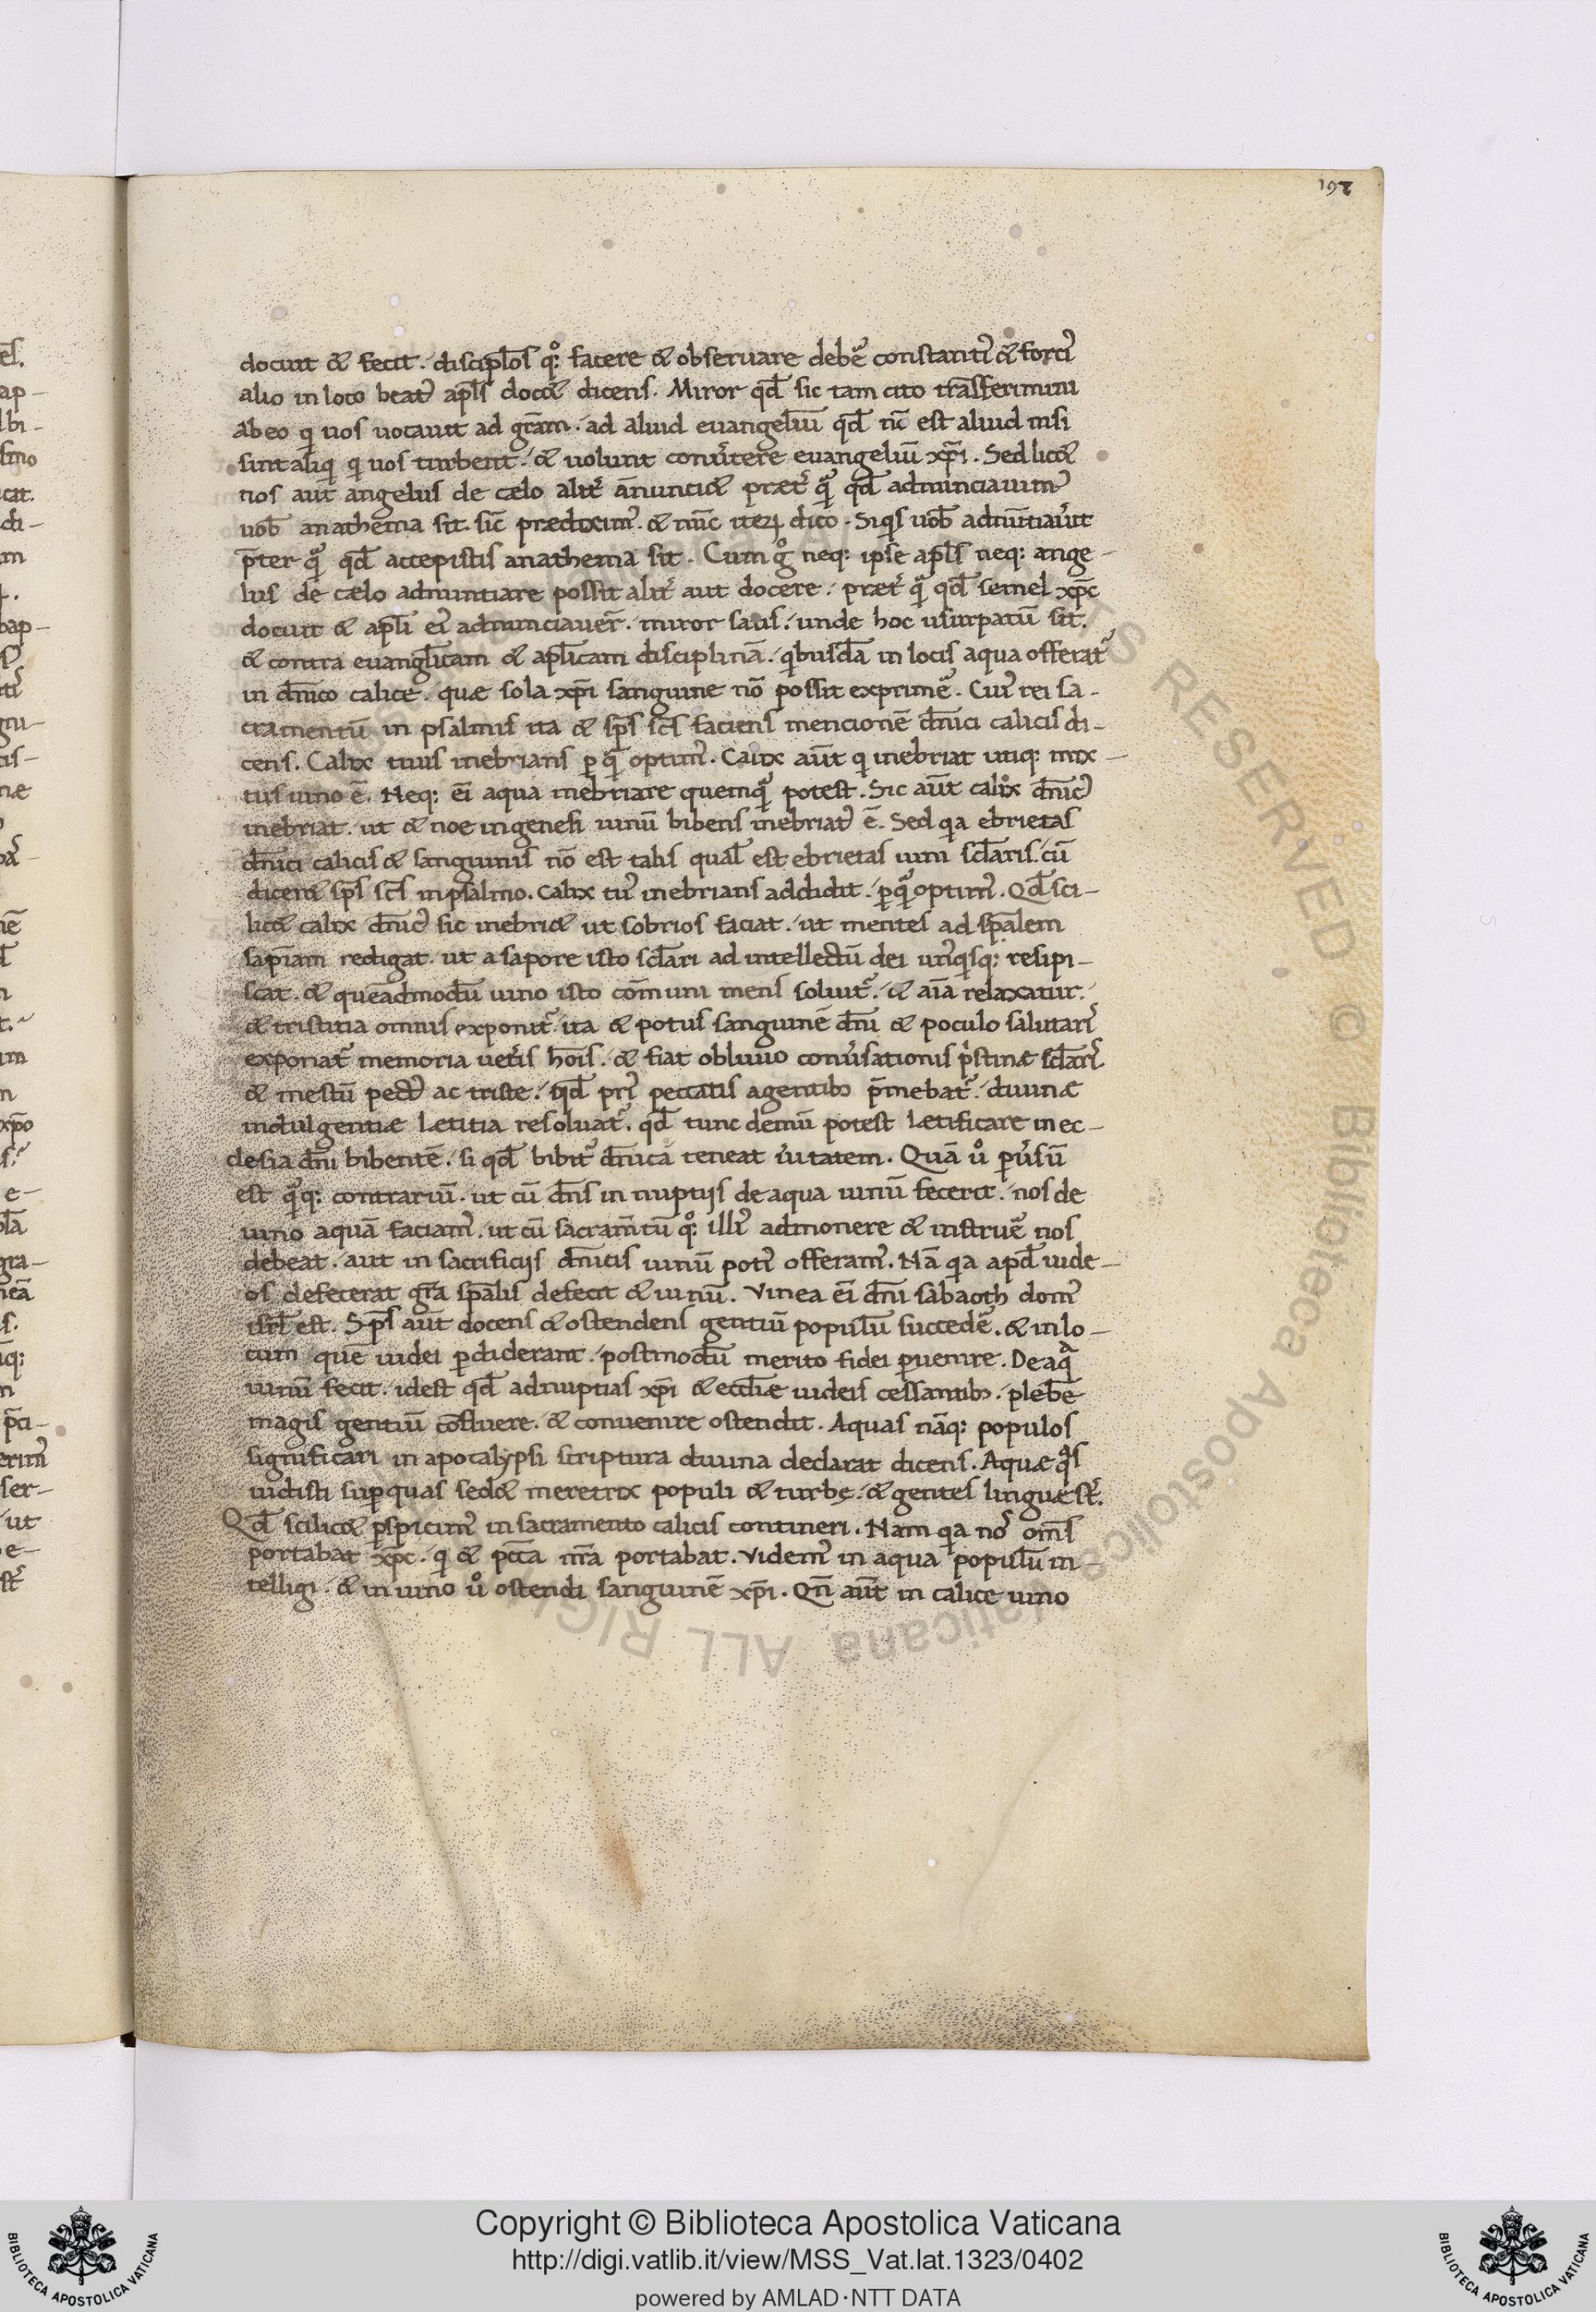 197
docuit & fecit. discip̄los q°; facere & obseruare deb&̄ constant̾ & fort̾
alio in loco beat̾ ap̄ls doc& dicens. Miror qđ sic tam cito trāsferimini
ab eo q̇ uos uocauit ad gr̄am. ad aliud euangeliū qđ n̄ est aliud nisi
sunt aliq̇ q̇ uos turbent. & uolunt conūtere euangeliū xp̄i. Sed lic&
nos aut angelus de cælo alit̾ ānunci& præt̾ quā qđ adnunciauim̾
uob̄ anathema sit. sic̄ prædixim̾. & nūc iteꝝ dico. Siq̇s uob̄ adnūtiau̾it
p̄ter quā qđ accepistis anathema sit. Cum g° neq; ipse ap̄ls neq; ange-
lus de cælo adnuntiare possit alit̾ aut docere. præt̾ quā qđ semel xp̄c
docuit & ap̄li ei̾ adnunciauer̄. miror satis. unde hoc usurpatū sit.
& contra euangl̄icam & ap̄licam disciplinā. q̇busdā in locis aqua offerat̾
in dn̄ico calice. quæ sola xp̄i sanguinē nō possit exprimē. Cui̾ rei sa-
cramentū in psalmis ita & sp̄s sc̄s faciens mencionē dn̄ici calicis di-
cens. Calix tuus inebrians ꝑ quā optim̾. Calix aūt q̇ inebriat utiq; mix-
tus uino ē. Neq; ei̅ aqua inebriare quemquā potest. Sic aūt calix dn̄ic̾
inebriat. ut & noe in genesi uinū bibens inebriat̾ ē. Sed q̇a ebrietas
dn̄ici calicis & sanguinis nō est talis qual̄ est ebrietas uini sc̄laris. cū
dicer& sp̄s sc̄s in psalmo. calix tu̾ inebrians addidit. ꝑquā optim̾. Qđ sci-
lic& calix dn̄ic̾ sic inebri& ut sobrios faciat. ut mentes ad sp̄alem
sapiam̄ redigat. ut a sapore isto sc̄lari ad intellectū dei un̾q̇sq; resipi-
scat. & queādmodū uino isto cōmuni mens soluit̾. & aīa relaxatur.
& tristitia omnis exponit̾. ita & potus sanguinē dn̄i & poculo salutari
exponat̾ memoria uet̾is hōis. & fiat obliuio conūsationis p̄stinæ sc̄laris.
& mestū pect̾ ac triste. qđ pri̾ peccatis agentib; p̄mebat̾. diuinæ
indulgentiæ lætitia resoluat̾. qđ tunc demū potest lætificare in ec-
clesia dn̄i bibentē. si qđ bibit̾ dn̄icā teneat ūitatem. Quā u° ꝑu̾sū
est quāq; contrariū. ut cū dn̄s in nuptijs de aqua uinū fecerit. nos de
uino aquā faciam̾. ut cū sacram̄tū q°; illi̾ admonere & instruē nos
debeat. aut in sacrificijs dn̄icis uinū poti̾ offeram̾. Nā q̇a apđ iude-
os defecerat gr̄a sp̄alis defecit & uinū. Vinea ei̅ dn̄i sabaoth dom̾
isr̄l est. Sp̄s aūt docens & ostendens gentiū populū succedē. & in lo-
cum quē iudei ꝑdiderant. postmodū merito fidei ꝑuenire. De aqua
uinū fecit. idest qđ ad nuptias xp̄i & eccl̄iæ iudeis cessantib;. plebē
magis gentiū cōfluere. & conuenire ostendit. Aquas nāq; populos
significari in apocalypsi scriptura diuina declarat dicens. Aquæ quas
uidisti suꝑ quas sed& meretrix populi & turbę. & gentes linguæ st̄.
Qđ scilic& ꝑspicim̾ in sacramento calicis contineri. Nam q̇a nos om̄s
portabat xp̄c. q̇ & pcc̄a nr̄a portabat. Videm̾ in aqua populū in-
telligi. & in uino u° ostendi sanguinē xp̄i. Qn̄ aūt in calice uino
Copyright © Biblioteca Apostolica Vaticana
http://digi.vatlib.it/view/MSS_Vat.lat.1323/0402
powered by AMLAD·NTT DATA